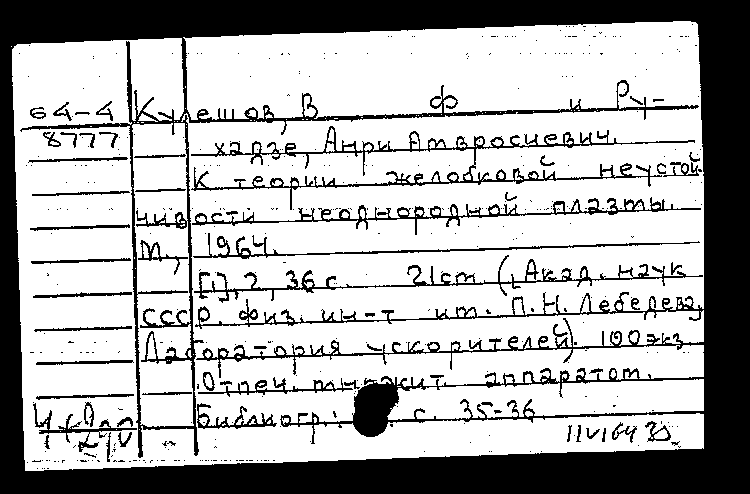 64-4 Кулешов, В Ф и Ру-
8777 хадзе, Анри Амвросиевич.
К теории желобковой неустой
чивости неоднородной плазмы.
М., 1964.
[1], 2, 36 с. 21 см (Акад. наук
СССР. Физ. ин-т им. П. Н. Лебедева,
Лаборатория ускорителей). 100 экз
Отпеч. множит. аппаратом.
Библиогр.: с. 35-36